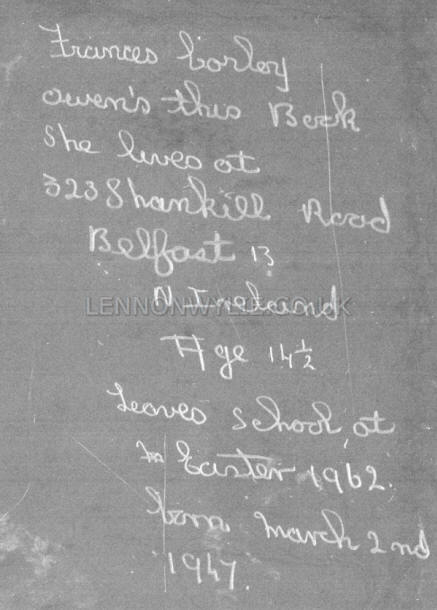 Frances Corley
owen's this Book
she lives at
323 Shankill Road
Belfast 13
N Ireland
LENNONWYLIE.CO.UK
Age 14½
Leaves school at
Easter 1962.
Born March 2nd
1947.